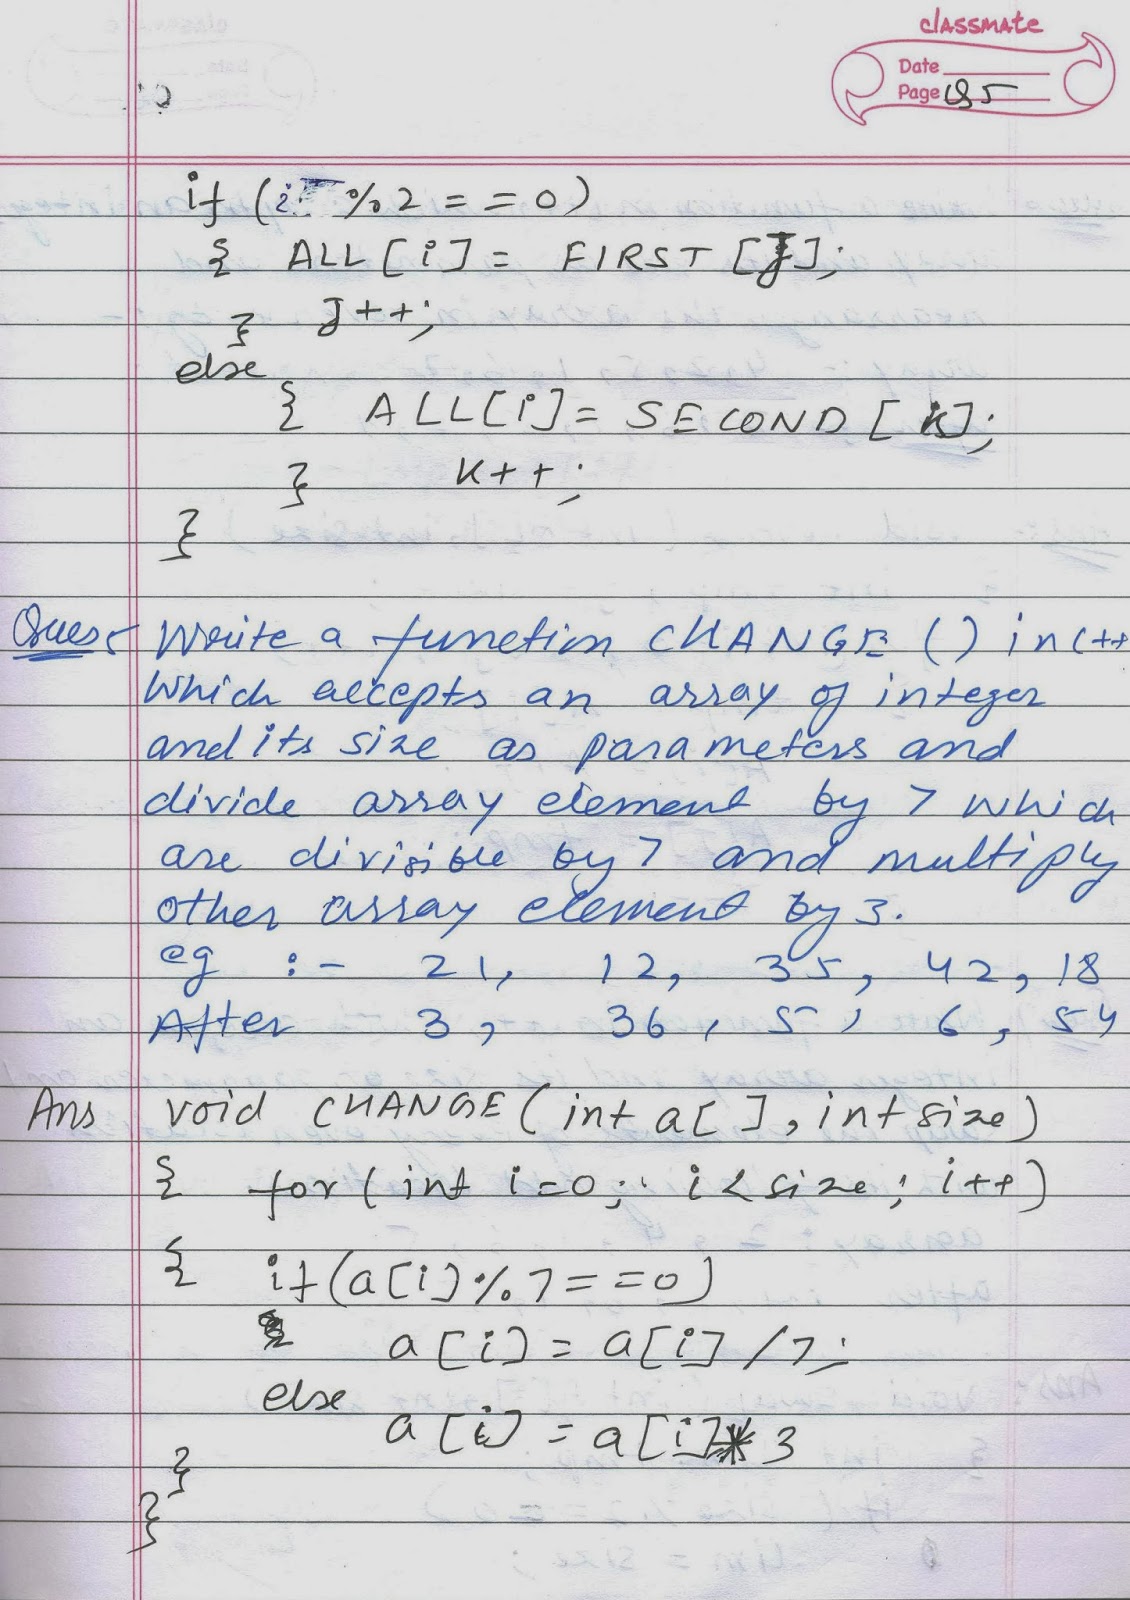 classmate
Date
Page 95
if (i %2 = = 0)
{ ALL [i] = FIRST [J];
} J++;
else
{ ALL[i] = SECOND [k];
} K++;
}
Ques Write a function CHANGE () in C++
which accepts an array of integer
and its size as parameters and
divide array element by 7 which
are divisible by 7 and multiply
other array element by 3.
eg :- 21, 12, 35, 42, 18
After 3, 36, 5, 6, 54
Ans void CHANGE (int a[ ], int size)
{ for (int i=0; i<size; i++)
{ if (a[i] % 7 = = 0)
a[i] = a[i] /7;
else
a[i] = a[i] * 3
}
}